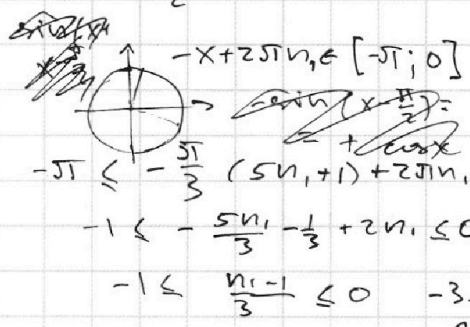 -x+2πn₁∈ [-π; 0]
-π ≤ -π/3 (5n₁+1) + 2πn₁
-1 ≤ - 5n₁/3 - 1/3 + 2n₁ ≤ 0
-1 ≤ (n₁-1)/3 ≤ 0 -3